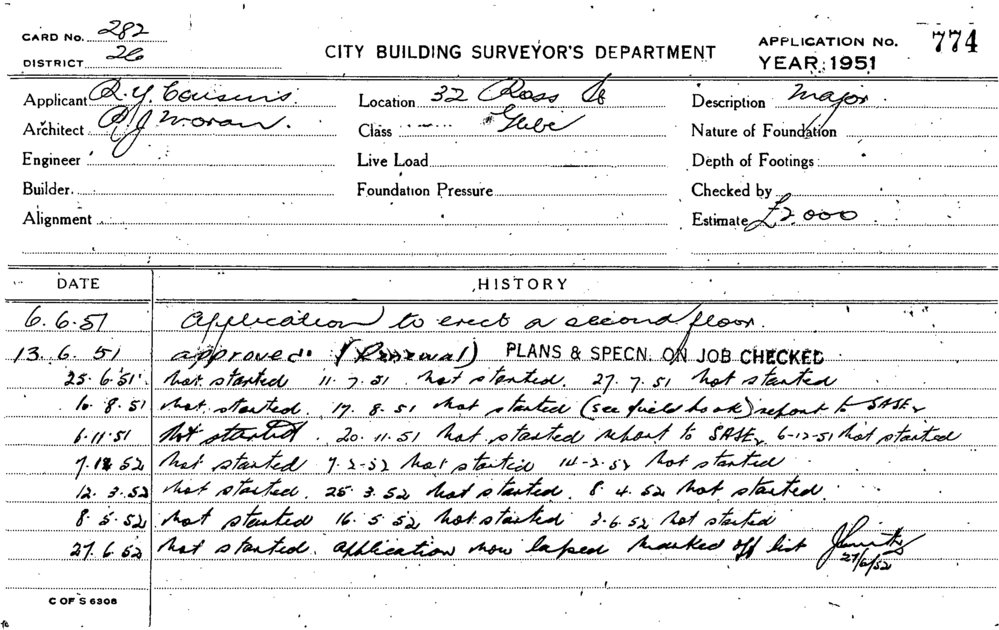 CARD No. 282
DISTRICT 26
CITY BUILDING SURVEYOR'S DEPARTMENT
APPLICATION No. 774
YEAR 1951
Applicant R. Y. Cousens
Location 32 Ross St
Description Major
Architect P J Moran.
Class Glebe
Nature of Foundation
Engineer
Live Load
Depth of Footings
Builder
Foundation Pressure
Checked by
Alignment
Estimate £2000
DATE HISTORY
6.6.51 Application to erect a second floor.
13.6.51 approved (Renewal) PLANS & SPECN. ON JOB CHECKED
25.6.51 not started 11.7.51 not started. 27.7.51 not started
10.8.51 not started. 17.8.51 not started (see field book) report to
6.11.51 not started. 20.11.51 not started report to 6-12-51 not started
52 not started 7-2-52 not started 14-2-52 not started
12.3.52 not started. 25.3.52 not started. 8.4.52 not started
8.5.52 not started 16.5.52 not started 3.6.52 not started
27.6.52 not started. application now lapsed marked off list
27/6/52
C OF S 6308